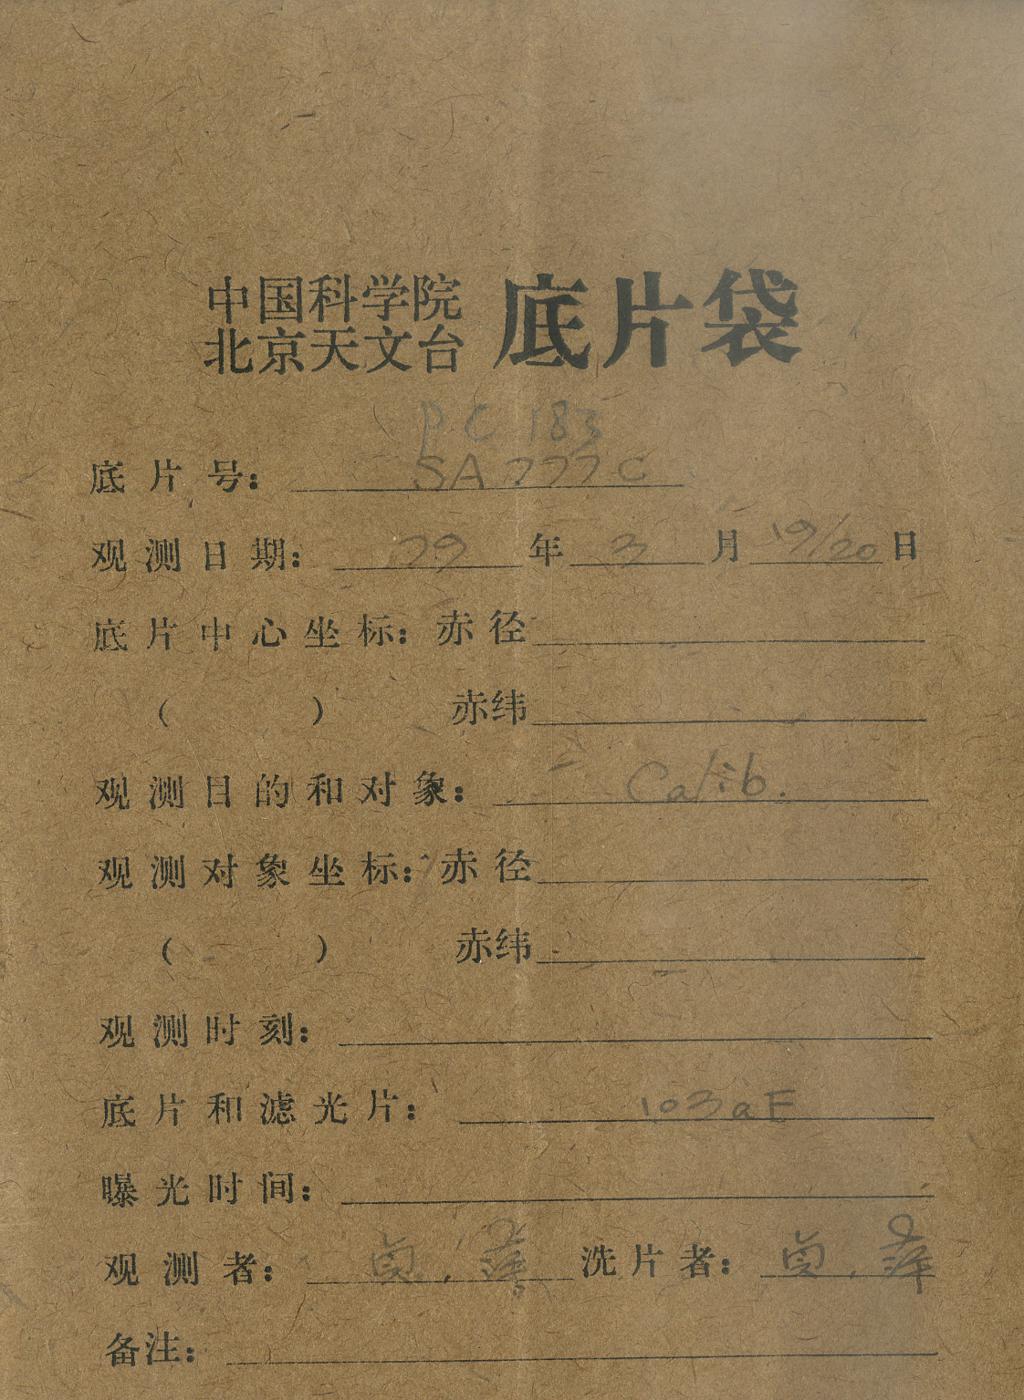 中国科学院
北京天文台
底片袋
PC 183
底片号: SA777C
观测日期: 79 年 3 月 19/20 日
底片中心坐标: 赤径
( ) 赤纬
观测目的和对象: Calib.
观测对象坐标: 赤径
( ) 赤纬
观测时刻:
底片和滤光片: 103aE
曝光时间:
观测者: 洗片者:
备注: